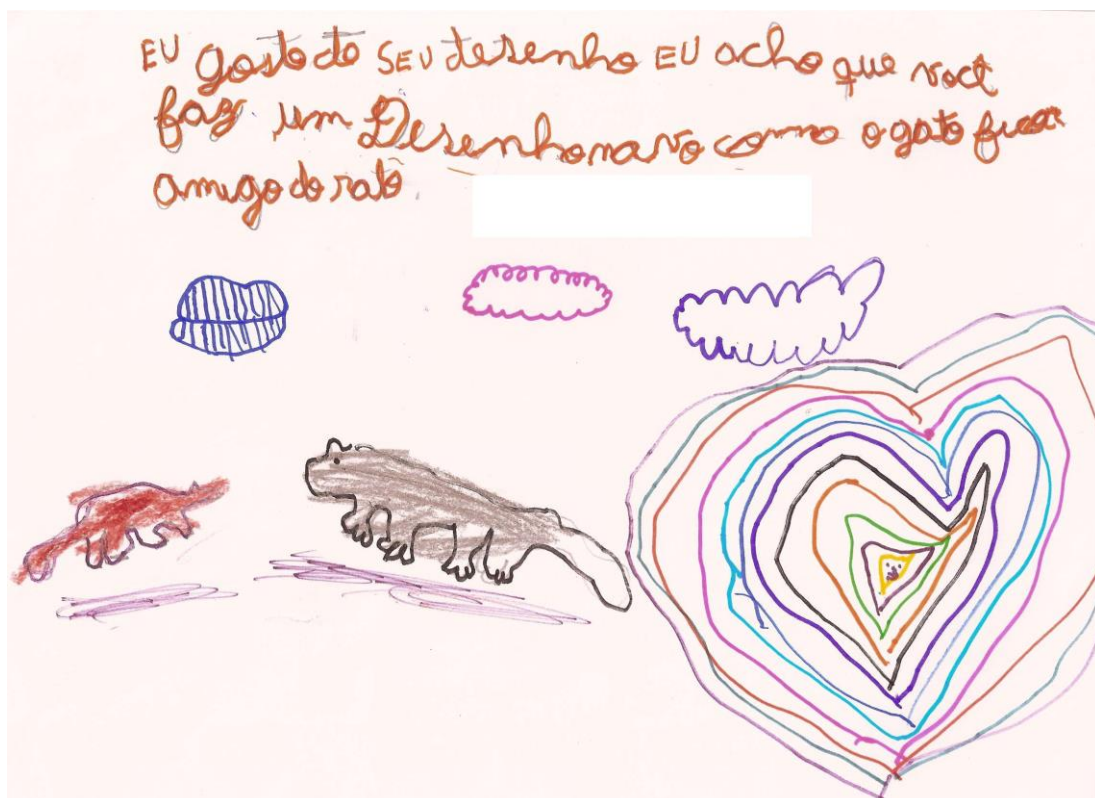 EU gosto do SEU desenho EU acho que você
faz um Desenho novo como o gato fica
amigo do rato